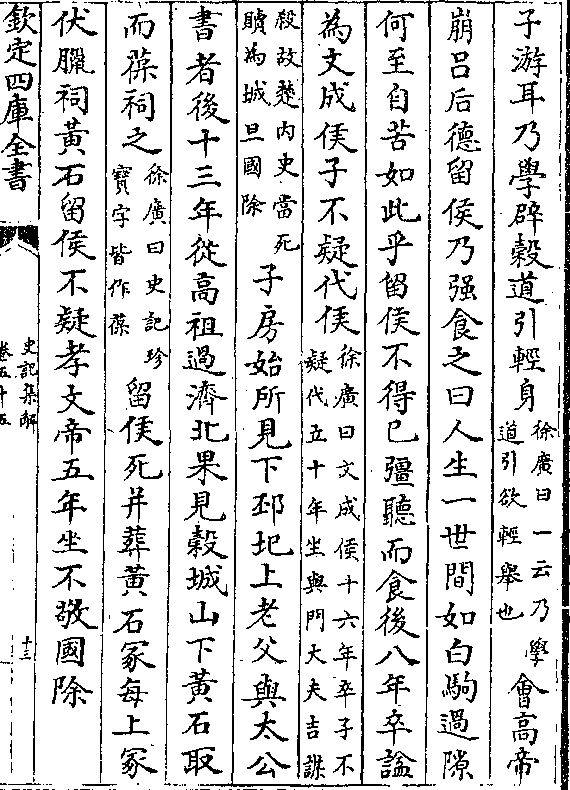 子游耳乃學辟糓道引輕身徐廣曰一云乃學道引欲輕舉也會高帝
崩吕后德留侯乃强食之曰人生一世間如白駒過隙
何至自苦如此乎留侯不得已彊聽而食後八年卒謚
為文成侯子不疑代侯徐廣曰文成侯十六年卒子不疑代立十年坐與門大夫吉謀
殺故楚内史當死贖為城旦國除子房始所見下邳圯上老父與太公
書者後十三年從高祖過濟北果見榖城山下黃石取
而葆祠之徐廣曰史記珍寳字皆作葆留侯死并葬黃石冢每上冢
伏臘祠黃石留侯不疑孝文帝五年坐不敬國除
欽定四庫全書
史記集解
卷五十五
十三